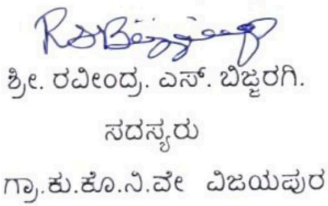 ಶ್ರೀ. ರವೀಂದ್ರ. ಎಸ್. ಬಿಜ್ಜರಗಿ.
ಸದಸ್ಯರು
ಗ್ರಾ.ಕು.ಕೊ.ನಿ.ವೇ ವಿಜಯಪುರ